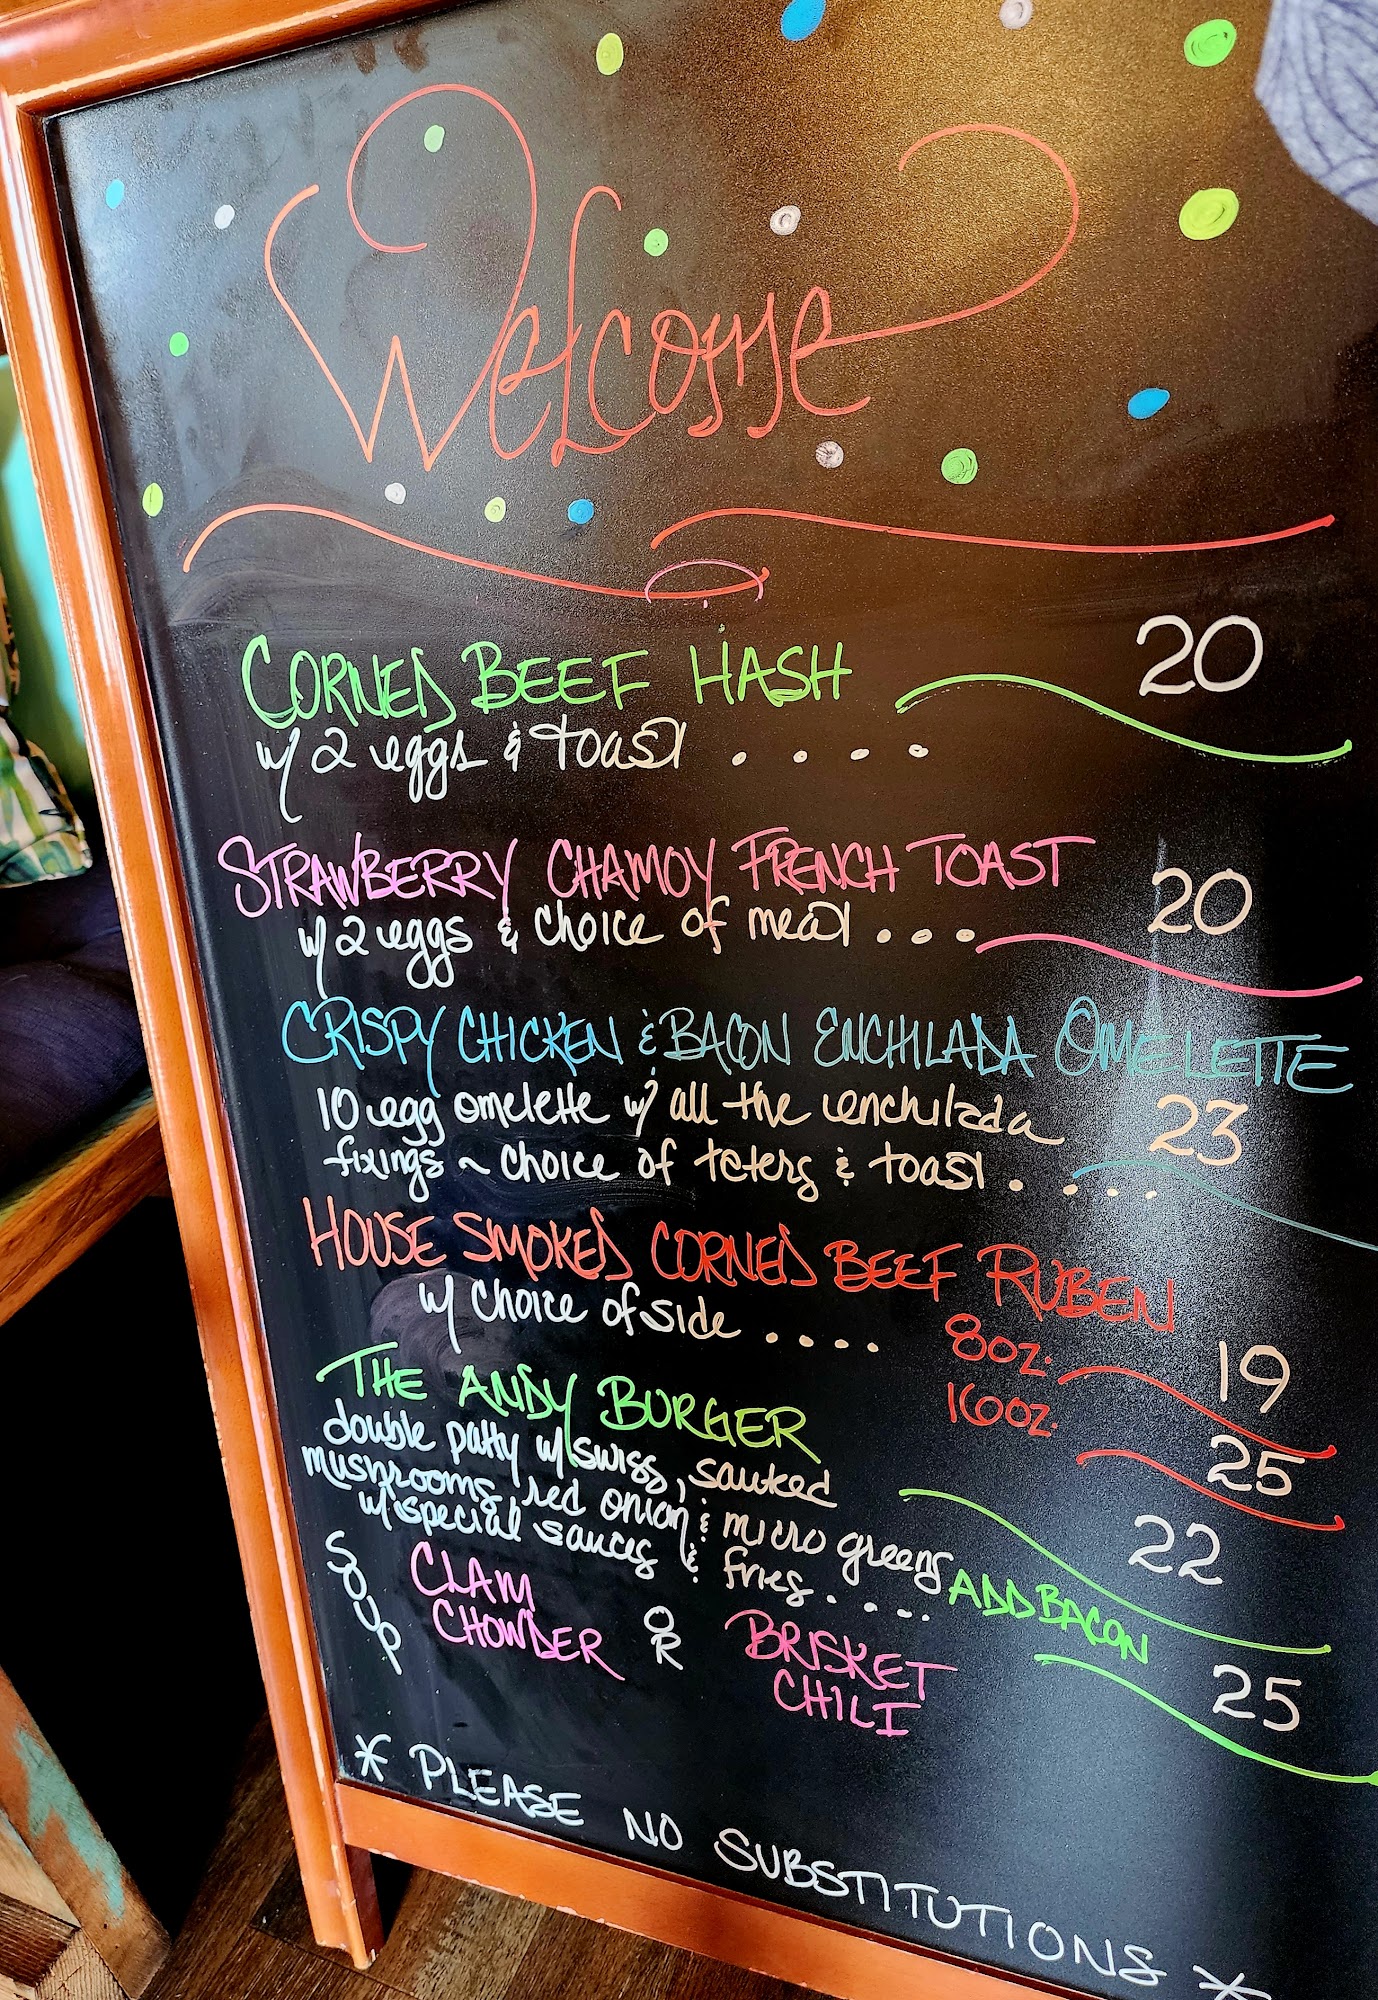 Welcome
CORNED BEEF HASH 20
w/ 2 eggs & toast . . . .
STRAWBERRY CHAMOY FRENCH TOAST 20
w/ 2 eggs & choice of meat . . .
CRISPY CHICKEN & BACON ENCHILADA OMELETTE
10 egg omelette w/ all the enchilada 23
fixings ~ choice of taters & toast . . . .
HOUSE SMOKED CORNED BEEF RUBEN
w/ choice of side . . . . 8oz. 19
16oz. 25
THE ANDY BURGER 22
double patty w/ swiss, sauteed
mushrooms, red onion & micro greens
w/ special sauces & fries . . . . ADD BACON 25
SOUP CLAM CHOWDER OR BRISKET CHILI
* PLEASE NO SUBSTITUTIONS *